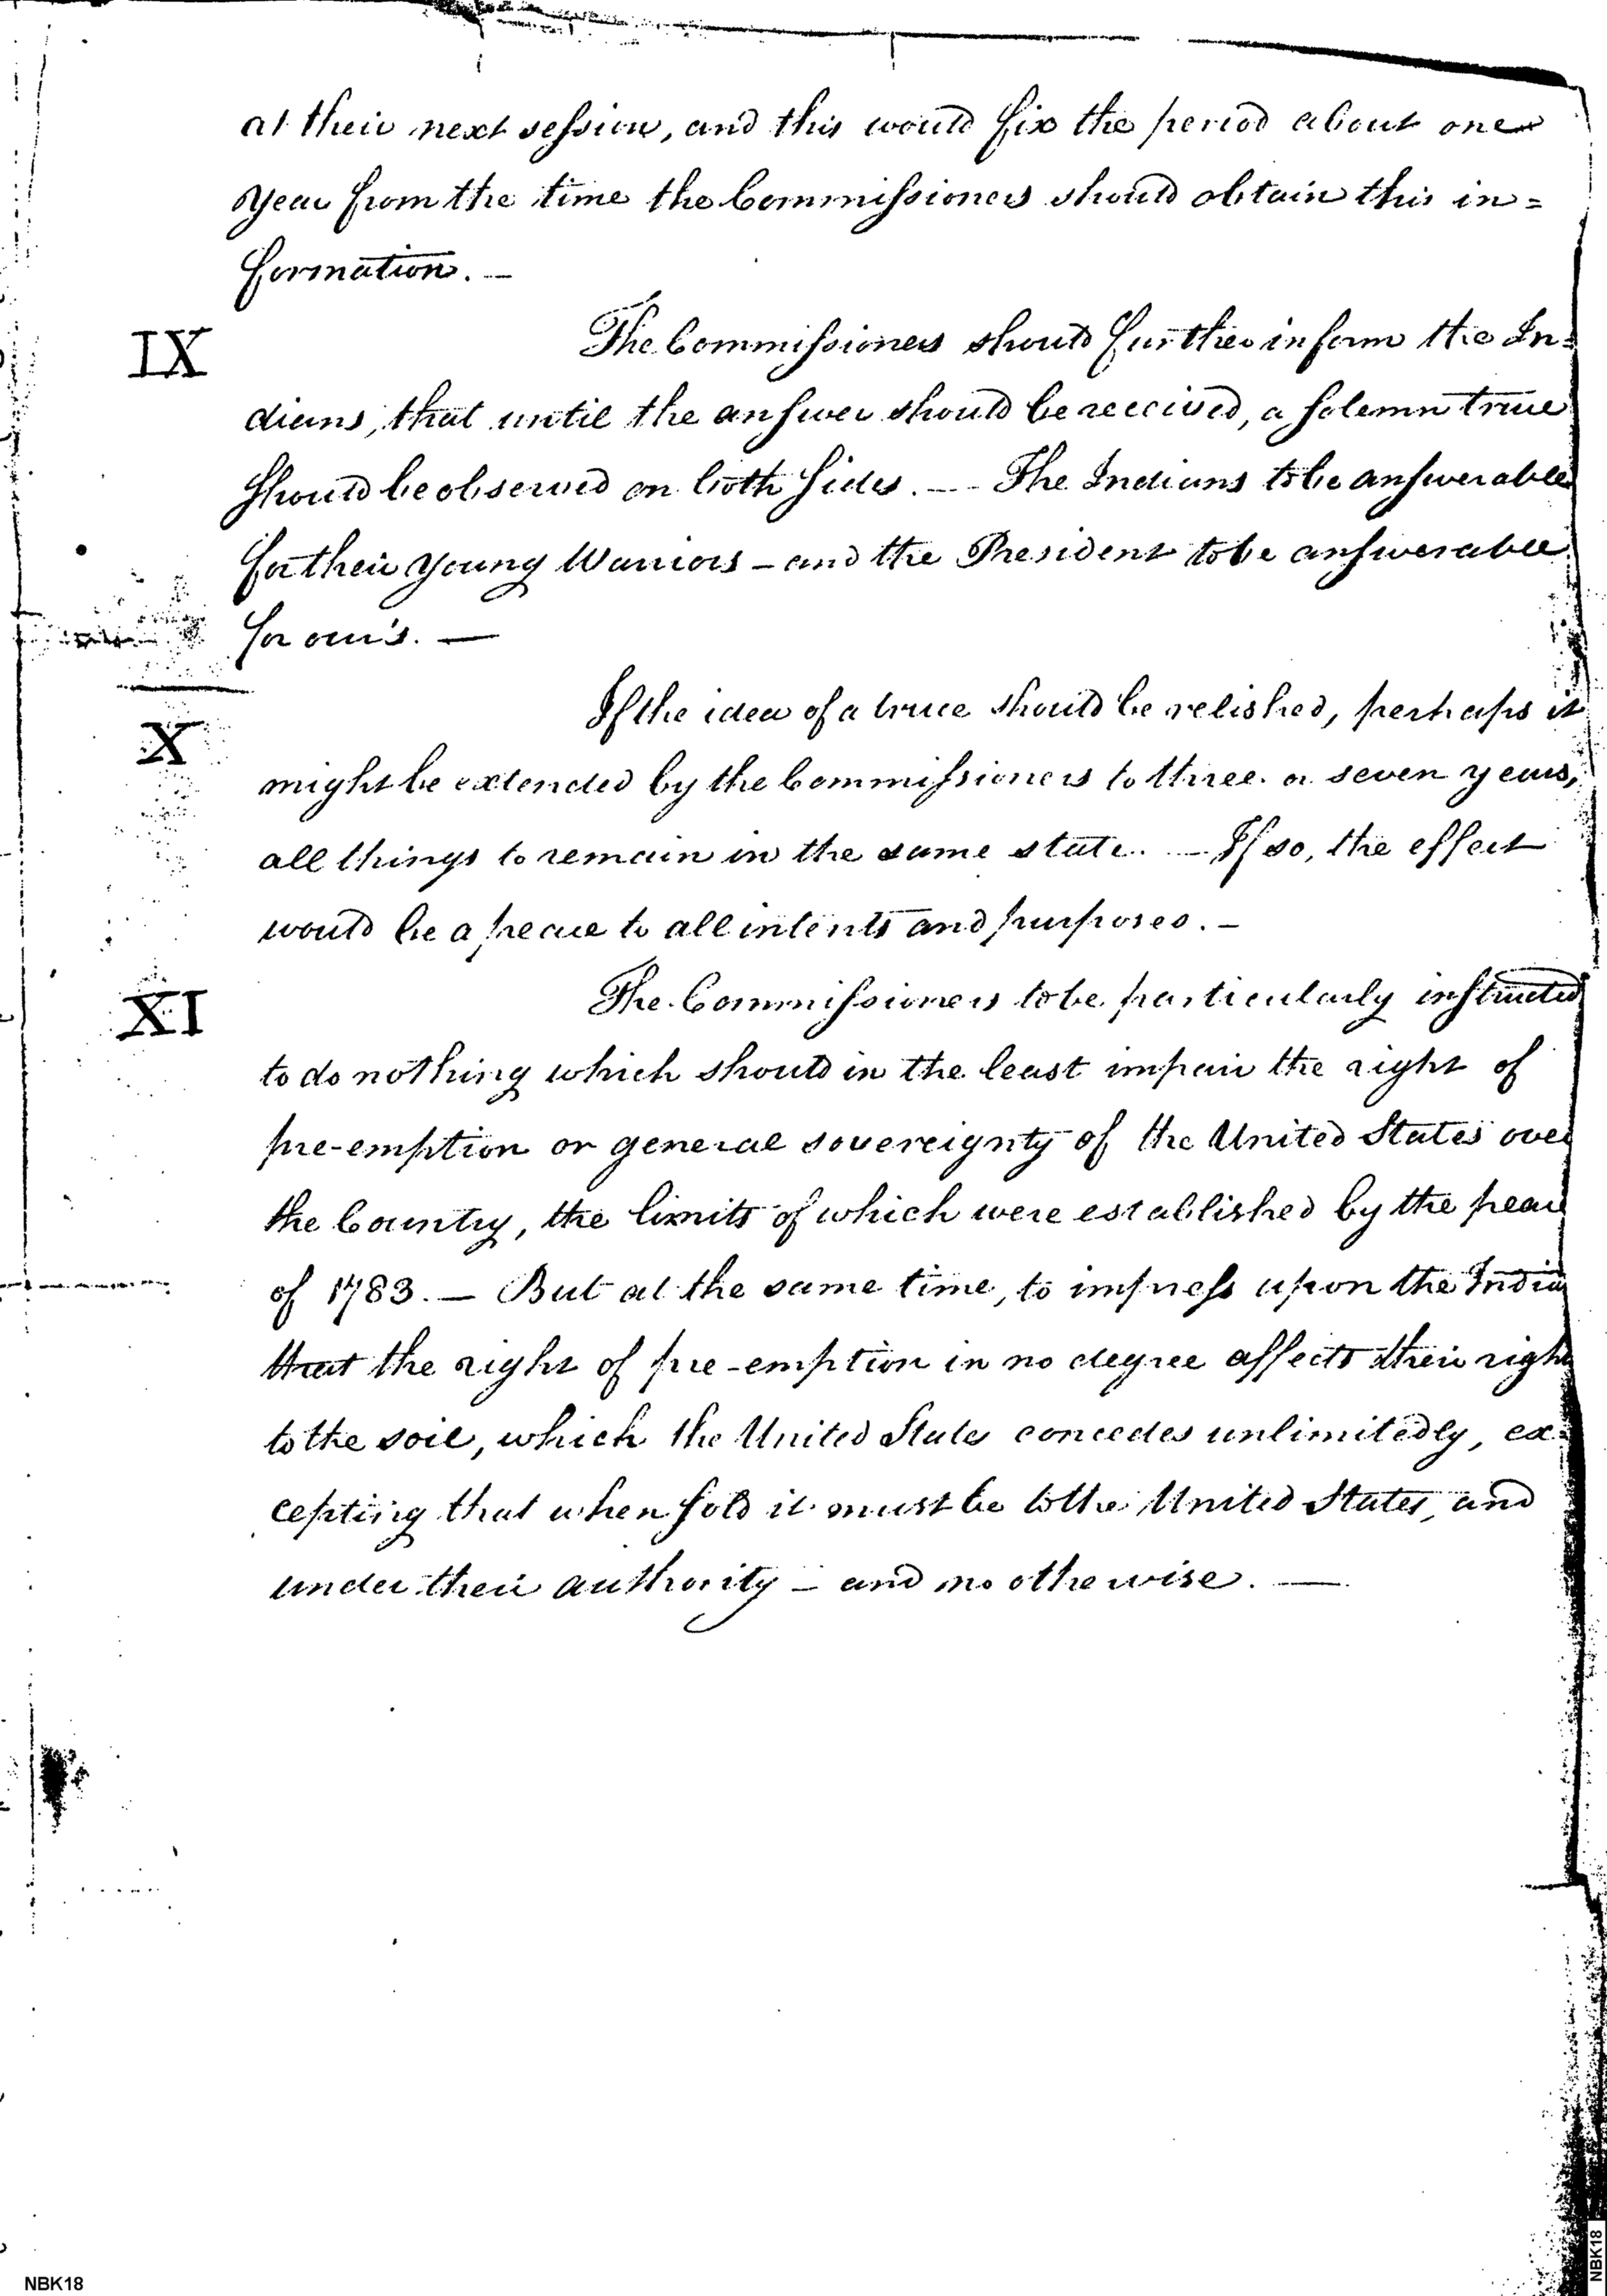 at their next session, and this would fix the period about one
year from the time the Commissioners should obtain this in=
formation. —
IX
The Commissioners should further inform the In=
dians, that until the answer should be received, a solemn truce
should be observed on both sides. -- The Indians to be answerable
for their young Warriors - and the President to be answerable
for our's. —
X
If the idea of a truce should be relished, perhaps it
might be extended by the Commissioners to three or seven years,
all things to remain in the same state. — If so, the effect
would be a peace to all intents and purposes. -
XI
The Commissioners to be particularly instructed
to do nothing which should in the least impair the right of
pre-emption or general sovereignty of the United States over
the Country, the limits of which were established by the peace
of 1783. — But at the same time, to impress upon the India
that the right of pre-emption in no degree affects their right
to the soil, which the United States concedes unlimitedly, ex=
cepting that when sold it must be to the United States, and
under their authority - and no otherwise. —
NBK18
NBK18